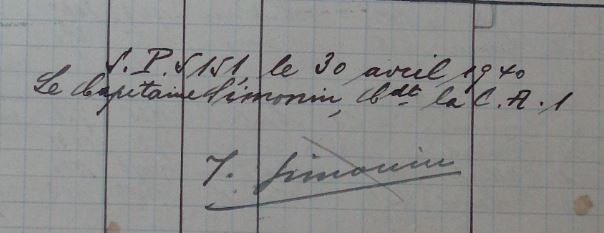 S.P. 5151, le 30 avril 1940
Le Capitaine Simonin, Cdt la C.A.1
J. Simonin